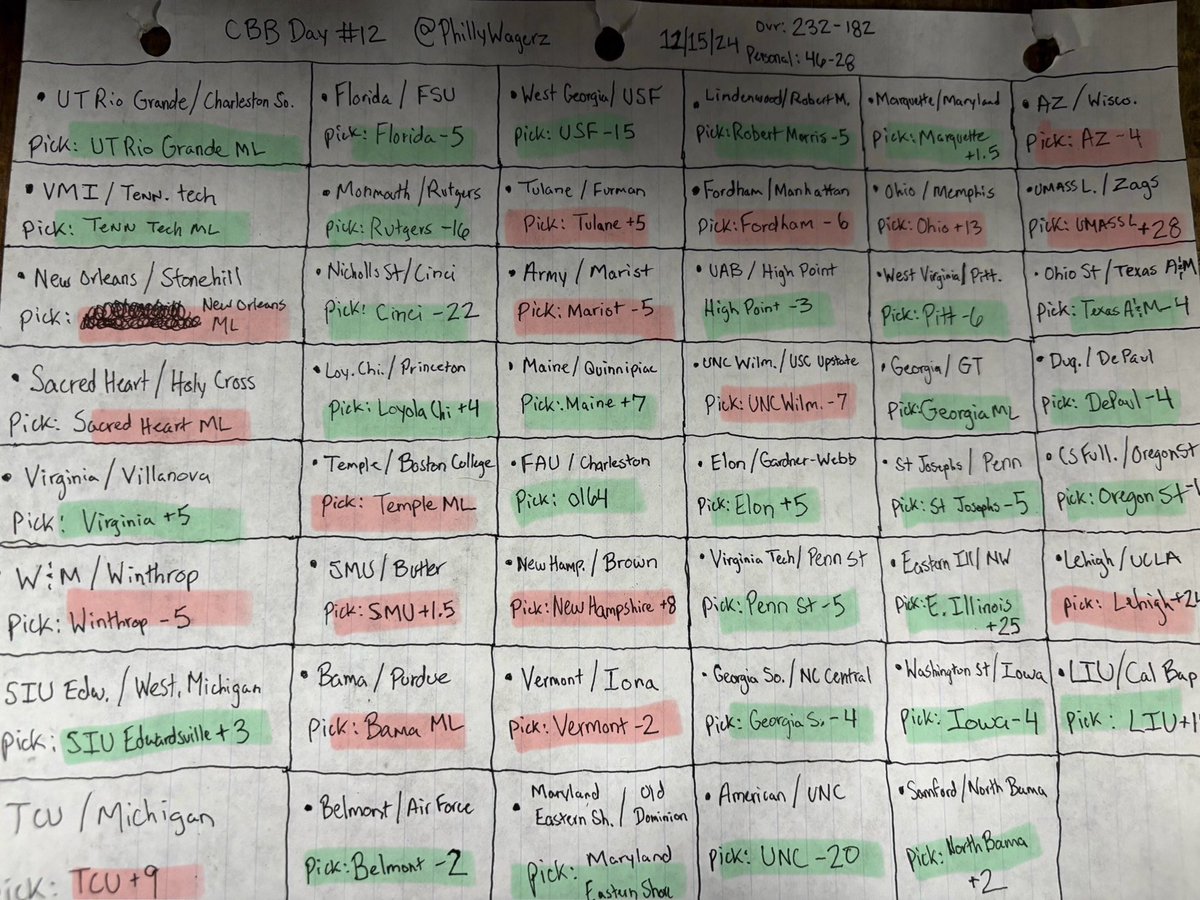 CBB Day #12 @PhillyWagerz 11/15/24 Ovr: 232-182
Personal: 46-28
• UT Rio Grande/Charleston So.
Pick: UT Rio Grande ML
• Florida / FSU
Pick: Florida -5
• West Georgia/USF
Pick: USF -15
• Lindenwood/Robert M.
Pick: Robert Morris -5
• Marquette/Maryland
Pick: Marquette
+1.5
• AZ / Wisco.
Pick: AZ -4
• VMI / Tenn. tech
Pick: Tenn Tech ML
• Monmouth / Rutgers
Pick: Rutgers -16
• Tulane / Furman
Pick: Tulane +5
• Fordham / Manhattan
Pick: Fordham -6
• Ohio / Memphis
Pick: Ohio +13
• UMASS L. / Zags
Pick: UMASS L +28
• New Orleans / Stonehill
Pick: New Orleans
ML
• Nicholls St / Cinci
Pick: Cinci -22
• Army / Marist
Pick: Marist -5
• UAB / High Point
High Point -3
• West Virginia / Pitt.
Pick: Pitt -6
• Ohio St / Texas A&M
Pick: Texas A&M -4
• Sacred Heart / Holy Cross
Pick: Sacred Heart ML
• Loy. Chi. / Princeton
Pick: Loyola Chi +4
• Maine / Quinnipiac
Pick: Maine +7
• UNC Wilm. / USC Upstate
Pick: UNC Wilm. -7
• Georgia / GT
Pick: Georgia ML
• Duq. / DePaul
Pick: DePaul -4
• Virginia / Villanova
Pick: Virginia +5
• Temple / Boston College
Pick: Temple ML
• FAU / Charleston
Pick: O164
• Elon / Gardner-Webb
Pick: Elon +5
• St Josephs / Penn
Pick: St Josephs -5
• CS Full. / Oregon St
Pick: Oregon St
W&M / Winthrop
Pick: Winthrop -5
• SMU / Butler
Pick: SMU +1.5
• New Hamp. / Brown
Pick: New Hampshire +8
• Virginia Tech / Penn St
Pick: Penn St -5
• Eastern Ill / NW
Pick: E. Illinois
+25
• Lehigh / UCLA
Pick: Lehigh
SIU Edw. / West. Michigan
Pick: SIU Edwardsville +3
• Bama / Purdue
Pick: Bama ML
• Vermont / Iona
Pick: Vermont -2
• Georgia So. / NC Central
Pick: Georgia S. -4
• Washington St / Iowa
Pick: Iowa -4
• LIU / Cal Bap
Pick: LIU
TCU / Michigan
Pick: TCU +9
• Belmont / Air Force
Pick: Belmont -2
• Maryland Eastern Sh. / Old Dominion
Pick: Maryland
Eastern Shore
• American / UNC
Pick: UNC -20
• Samford / North Bama
Pick: North Bama
+2